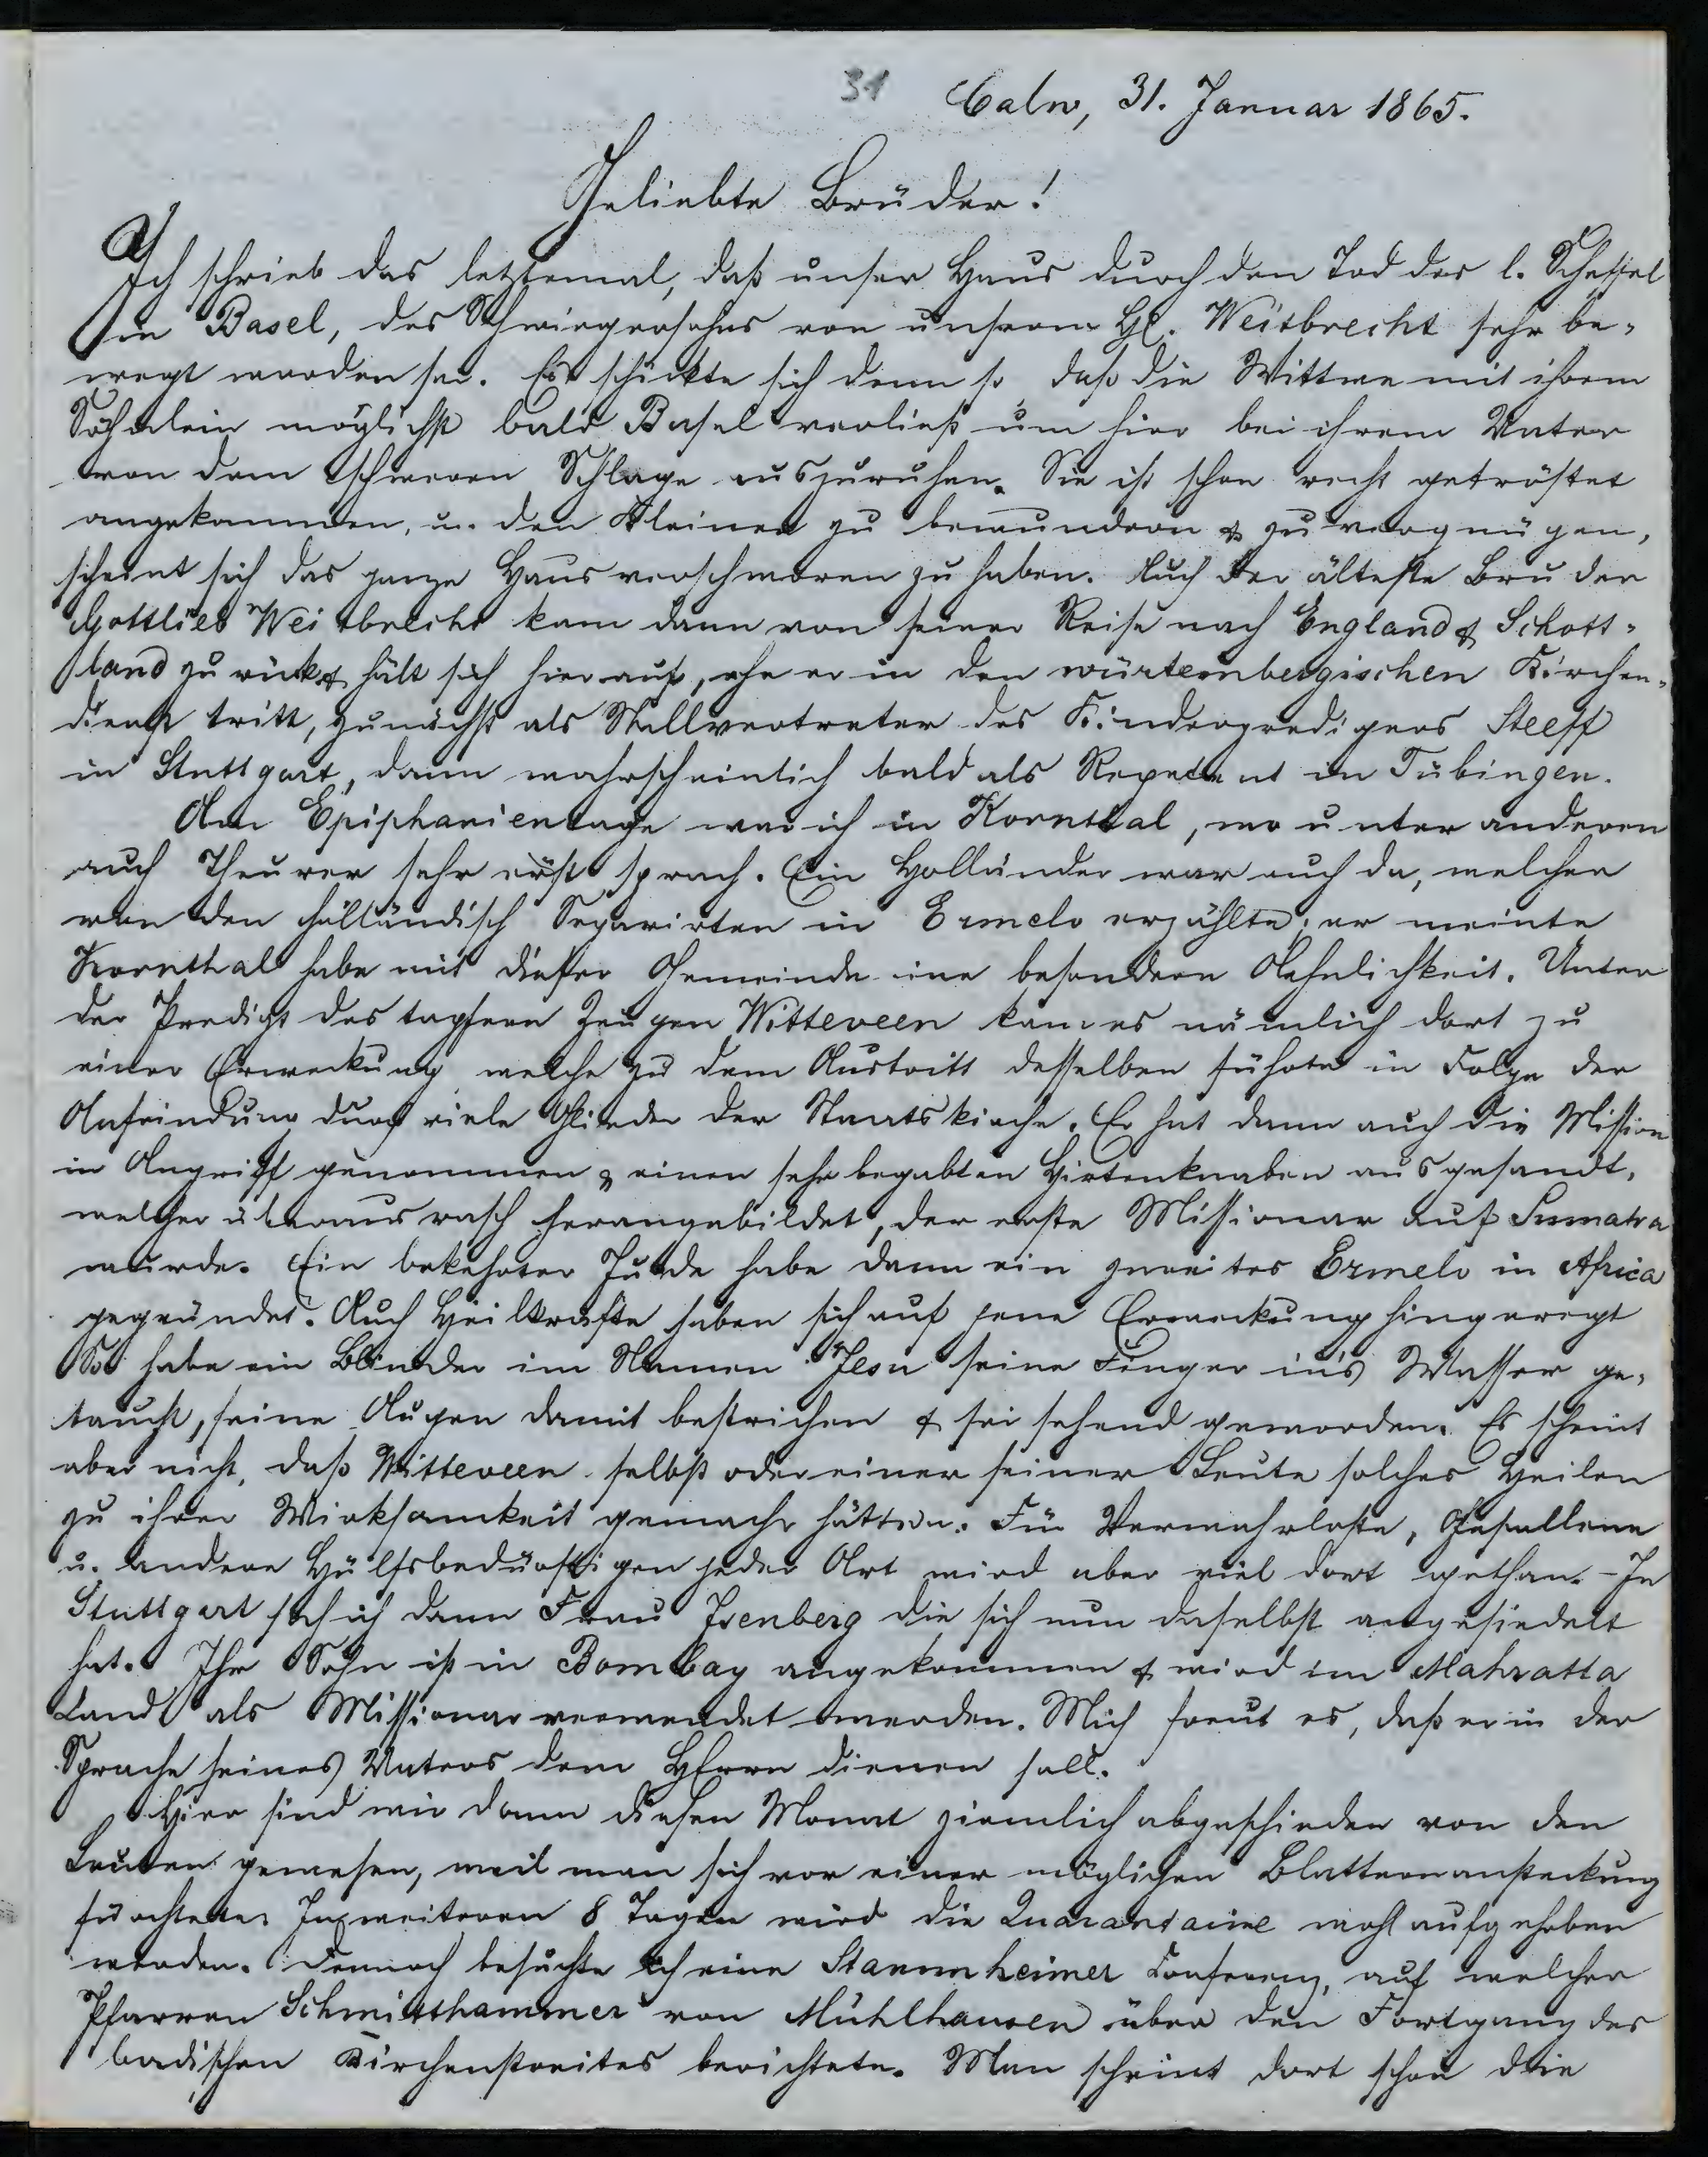 31 Calw, 31. Januar 1865.
Geliebte Brüder!
Ich schrieb das letztemal, daß unser Haus durch den Tod des l. Schessel
in Basel, des Schwiegersohns von unserem Hl. Weitbrecht sehr be-
wegt worden sei. Es schickte sich denn so, daß die Wittwe mit ihrem
Söhnlein möglichst bald Basel verließ um hier bei ihrem Vater
von dem schweren Schlage auszuruhen. Sie ist schon recht getröstet
angekommen, u. den Kleinen zu bewundern & zu vergnügen,
scheint sich das ganze Haus verschworen zu haben. Auch der älteste Bruder
Gottlieb Weitbrecht kam dann von seiner Reise nach England & Schott-
land zurück & hält sich hier auf, ehe er in den würtembergischen Kirchen-
dienst tritt, zunächst als Stellvertreter des Kinderpredigers Steeff
in Stuttgart, dann wahrscheinlich bald als Repetent in Tübingen.
Am Epiphanientage war ich in Kornthal, wo unter anderen
auch Theurer sehr ernst sprach. Ein Holländer war auch da, welcher
von den holländisch Separirten in Ermelo erzählte; er meinte
Kornthal habe mit dieser Gemeinde eine besondere Aehnlichkeit. Unter
der Predigt des tapfern Zeugen Witteveen kam es nämlich dort zu
einer Erweckung welche zu dem Austritt desselben führte in Folge der
Anfeindung durch viele Glieder der Staatskirche. Er hat dann auch die Mission
in Angriff genommen & einen sehr begabten Hirtenknaben ausgesandt,
welcher überaus rasch herangebildet, der erste Missionar auf Sumatra
wurde. Ein bekehrter Jude habe dann ein zweites Ermelo in Africa
gegründet. Auch Heilkräfte haben sich auf jene Erweckung hin geregt
So habe ein Blinder im Namen Jesu seine Finger in's Wasser ge-
taucht, seine Augen damit bestrichen & sei sehend geworden. Es scheint
aber nicht, daß Witteveen selbst oder einer seiner Leute solches Heilen
zu ihrer Wirksamkeit gemacht hätten. Für Verwahrloste, Gefallene
u. andere Hülfsbedürftigen jeder Art wird aber viel dort gethan. - In
Stuttgart sah ich dann Frau Isenberg die sich nun daselbst angesiedelt
hat. Ihr Sohn ist in Bombay angekommen & wird im Mahratta
Land als Missionar verwendet werden. Mich freut es, daß er in der
Sprache seines Vaters dem HErrn dienen soll.
Hier sind wir dann diesen Monat ziemlich abgeschieden von den
Leuten gewesen, weil man sich vor einer möglichen Blatternansteckung
fürchtete. In weiteren 8 Tagen wird die Quarantaine wohl aufgehoben
werden. Dennoch besuchte ich eine Stammheimer Conferenz, auf welcher
Pfarrer Schmitthammer von Mühlhausen über den Fortgang des
badischen Kirchenstreites berichtete. Man scheint dort schon die